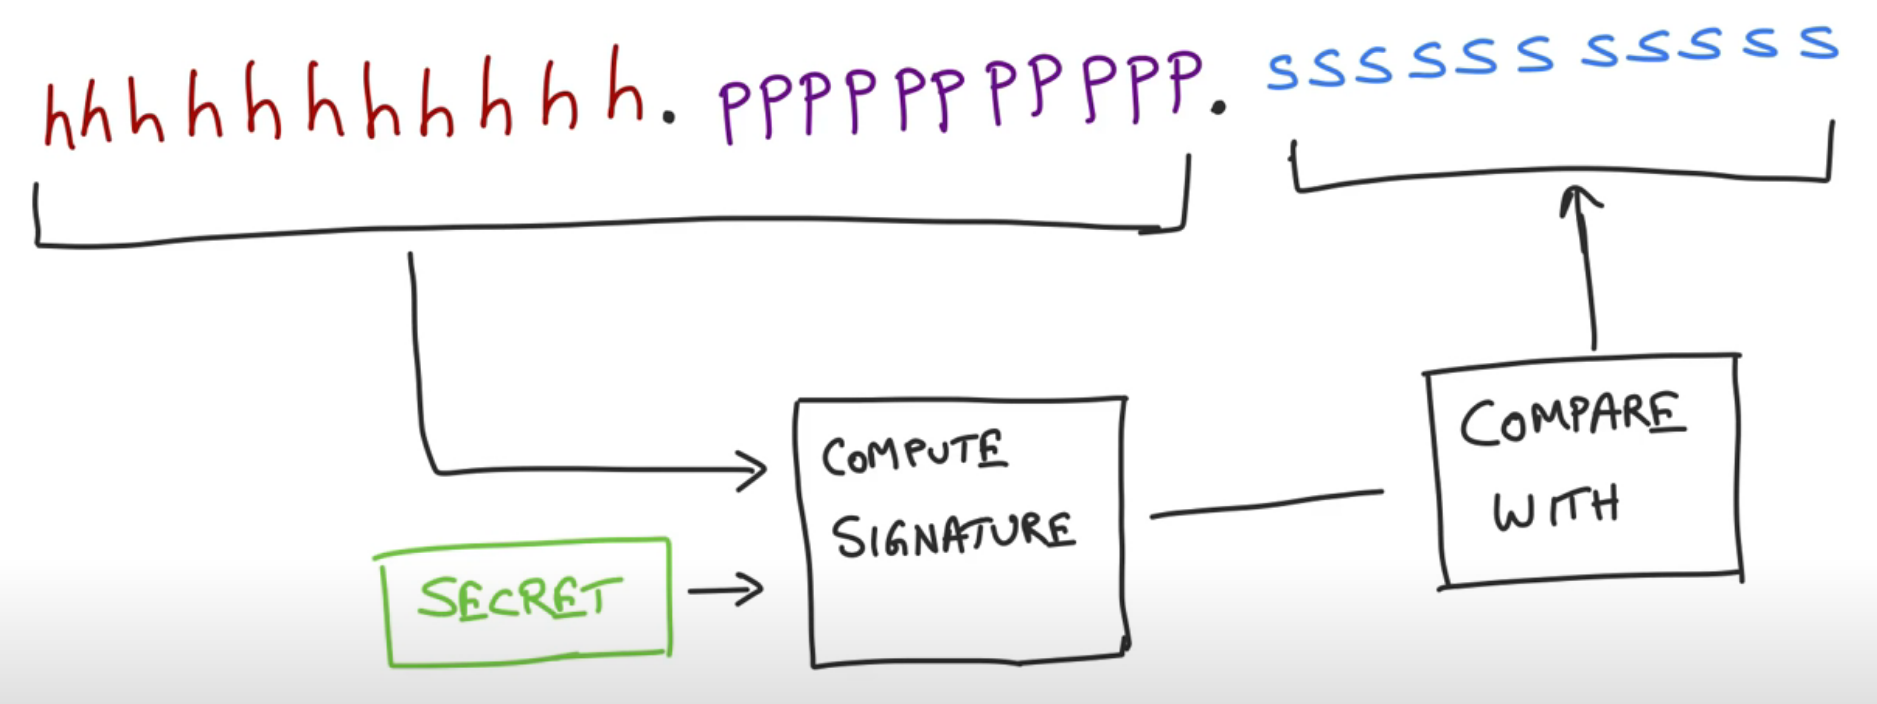 hhhhhhhhhhh.ppppppppppp.sssssssssss
COMPUTE
SIGNATURE
SECRET
COMPARE
WITH